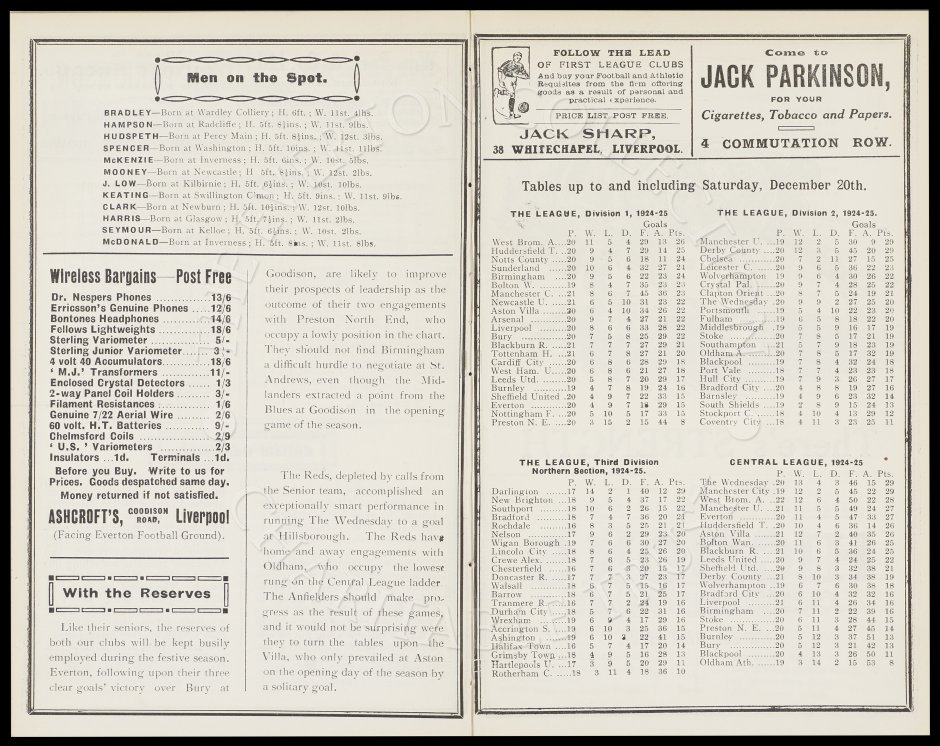 Men on the Spot.
BRADLEY—Born at Wardley Colliery; H. 6ft. ; W. 11st. 4lbs.
HAMPSON—Born at Radcliffe; H. 5ft. 8½ins. ; W. 11st. 9lbs.
HUDSPETH—Born at Percy Main; H. 5ft. 8½ins. ; W. 12st. 3lbs.
SPENCER—Born at Washington; H. 5ft. 10ins. ; W. 11st. 11lbs.
McKENZIE—Born at Inverness; H. 5ft. 6ins. ; W. 10st. 5lbs.
MOONEY—Born at Newcastle; H. 5ft. 8½ins. ; W. 12st. 2lbs.
J. LOW—Born at Kilbirnie; H. 5ft. 6½ins. ; W. 10st. 10lbs.
KEATING—Born at Swillington C'mon; H. 5ft. 9ins. ; W. 11st. 9lbs.
CLARK—Born at Newburn; H. 5ft. 10½ins. ; W. 12st. 10lbs.
HARRIS—Born at Glasgow; H. 5ft. 7½ins. ; W. 11st. 2lbs.
SEYMOUR—Born at Kelloe; H. 5ft. 6½ins. ; W. 10st. 2lbs.
McDONALD—Born at Inverness; H. 5ft. 8ins. ; W. 11st. 8lbs.
Wireless Bargains — Post Free
Dr. Nespers Phones 13/6
Erricsson's Genuine Phones 12/6
Bontones Headphones 14/6
Fellows Lightweights 18/6
Sterling Variometer 5/-
Sterling Junior Variometer 3/-
4 volt 40 Accumulators 18/6
' M.J.' Transformers 11/-
Enclosed Crystal Detectors 1/3
2-way Panel Coil Holders 3/-
Filament Resistances 1/6
Genuine 7/22 Aerial Wire 2/6
60 volt. H.T. Batteries 9/-
Chelmsford Coils 2/9
' U.S.' Variometers 2/3
Insulators ...1d. Terminals ...1d.
Before you Buy. Write to us for
Prices. Goods despatched same day.
Money returned if not satisfied.
ASHCROFT'S, GOODISON ROAD, Liverpool
(Facing Everton Football Ground).
With the Reserves
Like their seniors, the reserves of
both our clubs will be kept busily
employed during the festive season.
Everton, following upon their three
clear goals' victory over Bury at
Goodison, are likely to improve
their prospects of leadership as the
outcome of their two engagements
with Preston North End, who
occupy a lowly position in the chart.
They should not find Birmingham
a difficult hurdle to negotiate at St.
Andrews, even though the Mid-
landers extracted a point from the
Blues at Goodison in the opening
game of the season.
The Reds, depleted by calls from
the Senior team, accomplished an
exceptionally smart performance in
running The Wednesday to a goal
at Hillsborough. The Reds have
home and away engagements with
Oldham, who occupy the lowest
rung on the Central League ladder
The Anfielders should make pro-
gress as the result of these games,
and it would be surprising were
they to turn the tables upon the
Villa, who only prevailed at Aston
on the opening day of the season by
a solitary goal.
FOLLOW THE LEAD
OF FIRST LEAGUE CLUBS
And buy your Football and Athletic
Requisites from the firm offering
goods as a result of personal and
practical experience.
PRICE LIST POST FREE.
JACK SHARP,
38 WHITECHAPEL, LIVERPOOL.
Come to
JACK PARKINSON,
FOR YOUR
Cigarettes, Tobacco and Papers.
4 COMMUTATION ROW.
Tables up to and including Saturday, December 20th.
THE LEAGUE, Division 1, 1924-25
Goals
P. W. L. D. F. A. Pts.
West Brom. A. ...20 11 5 4 29 13 26
Huddersfield T. ..20 9 4 7 29 14 25
Notts County ....20 9 5 6 18 11 24
Sunderland ......20 10 6 4 32 27 24
Birmingham ....20 9 5 6 22 23 24
Bolton W. .......19 8 4 7 35 23 23
Manchester C. ...21 8 6 7 45 36 23
Newcastle U. ....21 6 5 10 31 23 22
Aston Villa .....20 6 4 10 34 26 22
Arsenal ........20 9 7 4 27 21 22
Liverpool ......20 8 6 6 33 28 22
Bury ..........20 7 5 8 25 29 22
Blackburn R. ...21 7 7 7 27 29 21
Tottenham H. ...21 6 7 8 27 21 20
Cardiff City ....20 6 8 6 28 29 18
West Ham. U. ...20 6 8 6 21 27 18
Leeds Utd. ....20 5 8 7 20 29 17
Burnley .......19 4 7 8 19 24 16
Sheffield United .20 4 9 7 22 33 15
Everton .......20 4 9 7 18 29 15
Nottingham F. ...20 5 10 5 17 33 15
Preston N. E. ....20 3 15 2 15 44 8
THE LEAGUE, Division 2, 1924-25.
Goals
P. W. L. D. F. A. Pts.
Manchester U. ...19 12 2 5 30 9 29
Derby County ...20 12 3 5 45 20 29
Chelsea ........20 7 2 11 27 15 25
Leicester C. ....20 9 6 5 36 22 23
Wolverhampton .19 9 6 4 30 26 22
Crystal Pal. ....20 9 7 4 28 25 22
Clapton Orient ..20 8 7 5 24 19 21
The Wednesday .20 9 9 2 27 25 20
Portsmouth .....19 5 4 10 22 23 20
Fulham ........19 6 5 8 18 22 20
Middlesbrough .19 5 5 9 16 17 19
Stoke .........20 7 8 5 17 21 19
Southampton ...21 5 7 9 18 23 19
Oldham A. .....20 7 8 5 17 32 19
Blackpool ......19 7 8 4 32 24 18
Port Vale ......18 7 7 4 23 23 18
Hull City ......19 7 9 3 26 27 17
Bradford City ...20 4 8 8 19 27 16
Barnsley .......19 4 9 6 23 32 14
South Shields ...19 2 8 9 15 24 13
Stockport C. ....18 4 10 4 13 29 12
Coventry City ...18 4 11 3 23 25 11
THE LEAGUE, Third Division
Northern Section, 1924-25.
P. W. L. D. F. A. Pts.
Darlington ......17 14 2 1 40 12 29
New Brighton ...18 9 5 4 37 17 22
Southport ......18 10 6 2 26 15 22
Bradford .......18 7 4 7 36 20 21
Rochdale .......16 8 3 5 25 21 21
Nelson .........17 9 6 2 29 23 20
Wigan Borough .19 7 6 6 30 27 20
Lincoln City ....18 8 6 4 25 26 20
Crewe Alex. ....18 7 6 5 23 26 19
Chesterfield ....16 7 6 3 20 15 17
Doncaster R. ....17 7 7 3 27 23 17
Walsall ........18 6 7 5 15 16 17
Barrow .........18 6 7 5 21 25 17
Tranmere R. ....16 7 7 2 24 19 16
Durham City ....18 5 7 6 22 31 16
Wrexham .......19 6 9 4 17 29 16
Accrington S. ...19 6 10 3 25 36 15
Ashington ......19 6 10 3 22 41 15
Halifax Town ...16 5 7 4 17 20 14
Grimsby Town ...18 4 9 5 16 28 13
Hartlepools U. ...17 3 9 5 20 29 11
Rotherham C. ....18 3 11 4 18 36 10
CENTRAL LEAGUE, 1924-25
P. W. L. D. F. A. Pts.
The Wednesday .20 13 4 3 46 15 29
Manchester City .19 12 2 5 45 22 29
West Brom. A. ...22 12 6 4 50 22 28
Manchester U. ...21 11 5 5 49 24 27
Everton ........20 11 4 5 47 33 27
Huddersfield T. ..20 10 4 6 36 14 26
Aston Villa .....21 12 7 2 40 35 26
Bolton Wan. ....20 11 6 3 41 26 25
Blackburn R. ....21 10 6 5 36 24 25
Leeds United ...20 9 7 4 24 25 22
Sheffield Utd. ...20 9 8 3 32 38 21
Derby County ...21 8 10 3 34 38 19
Wolverhampton ..19 6 7 6 30 38 18
Bradford City ...20 6 10 4 32 32 16
Liverpool .......21 6 11 4 26 34 16
Birmingham .....20 7 11 2 22 39 16
Stoke ..........20 6 11 3 28 44 15
Preston N. E. ...20 5 11 4 27 45 14
Burnley ........20 5 12 3 37 51 13
Bury ..........20 5 12 3 21 42 13
Blackpool ......20 4 13 3 26 50 11
Oldham Ath. ....19 3 14 2 15 53 8